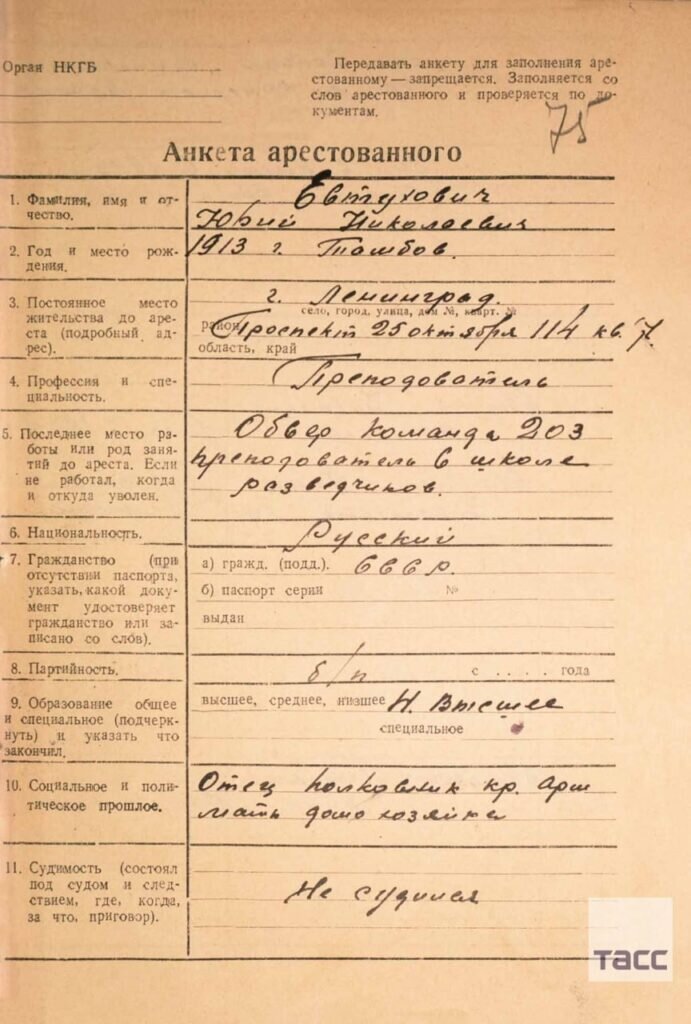 Орган НКГБ
Передавать анкету для заполнения аре-
стованному — запрещается. Заполняется со
слов арестованного и проверяется по до-
кументам.
75
Анкета арестованного
1. Фамилия, имя и от-
чество.
Евтухович
Юрий Николаевич
2. Год и место рож-
дения.
1913 г. Тамбов.
3. Постоянное место
жительства до аре-
ста (подробный ад-
рес).
г. Ленинград.
село, город, улица, дом №, кварт. №
район Проспект 25 октября 114 кв. 7.
область, край
4. Профессия и спе-
циальность.
Преподователь
5. Последнее место ра-
боты или род заня-
тий до ареста. Если
не работал, когда
и откуда уволен.
Обвер команда 203
преподователь в школе
разведчиков.
6. Национальность.
Русский
7. Гражданство (при
отсутствии паспорта,
указать, какой доку-
мент удостоверяет
гражданство или за-
писано со слов).
а) гражд. (подд.). СССР.
б) паспорт серии №
выдан
8. Партийность.
б/п с . . . . . года
9. Образование общее
и специальное (подчерк-
нуть) и указать что
закончил.
высшее, среднее, низшее Н. Высшее
специальное
10. Социальное и поли-
тическое прошлое.
Отец полковник кр. арм
мать домохозяйка
11. Судимость (состоял
под судом и след-
ствием, где, когда,
за что, приговор).
Не судился
ТАСС